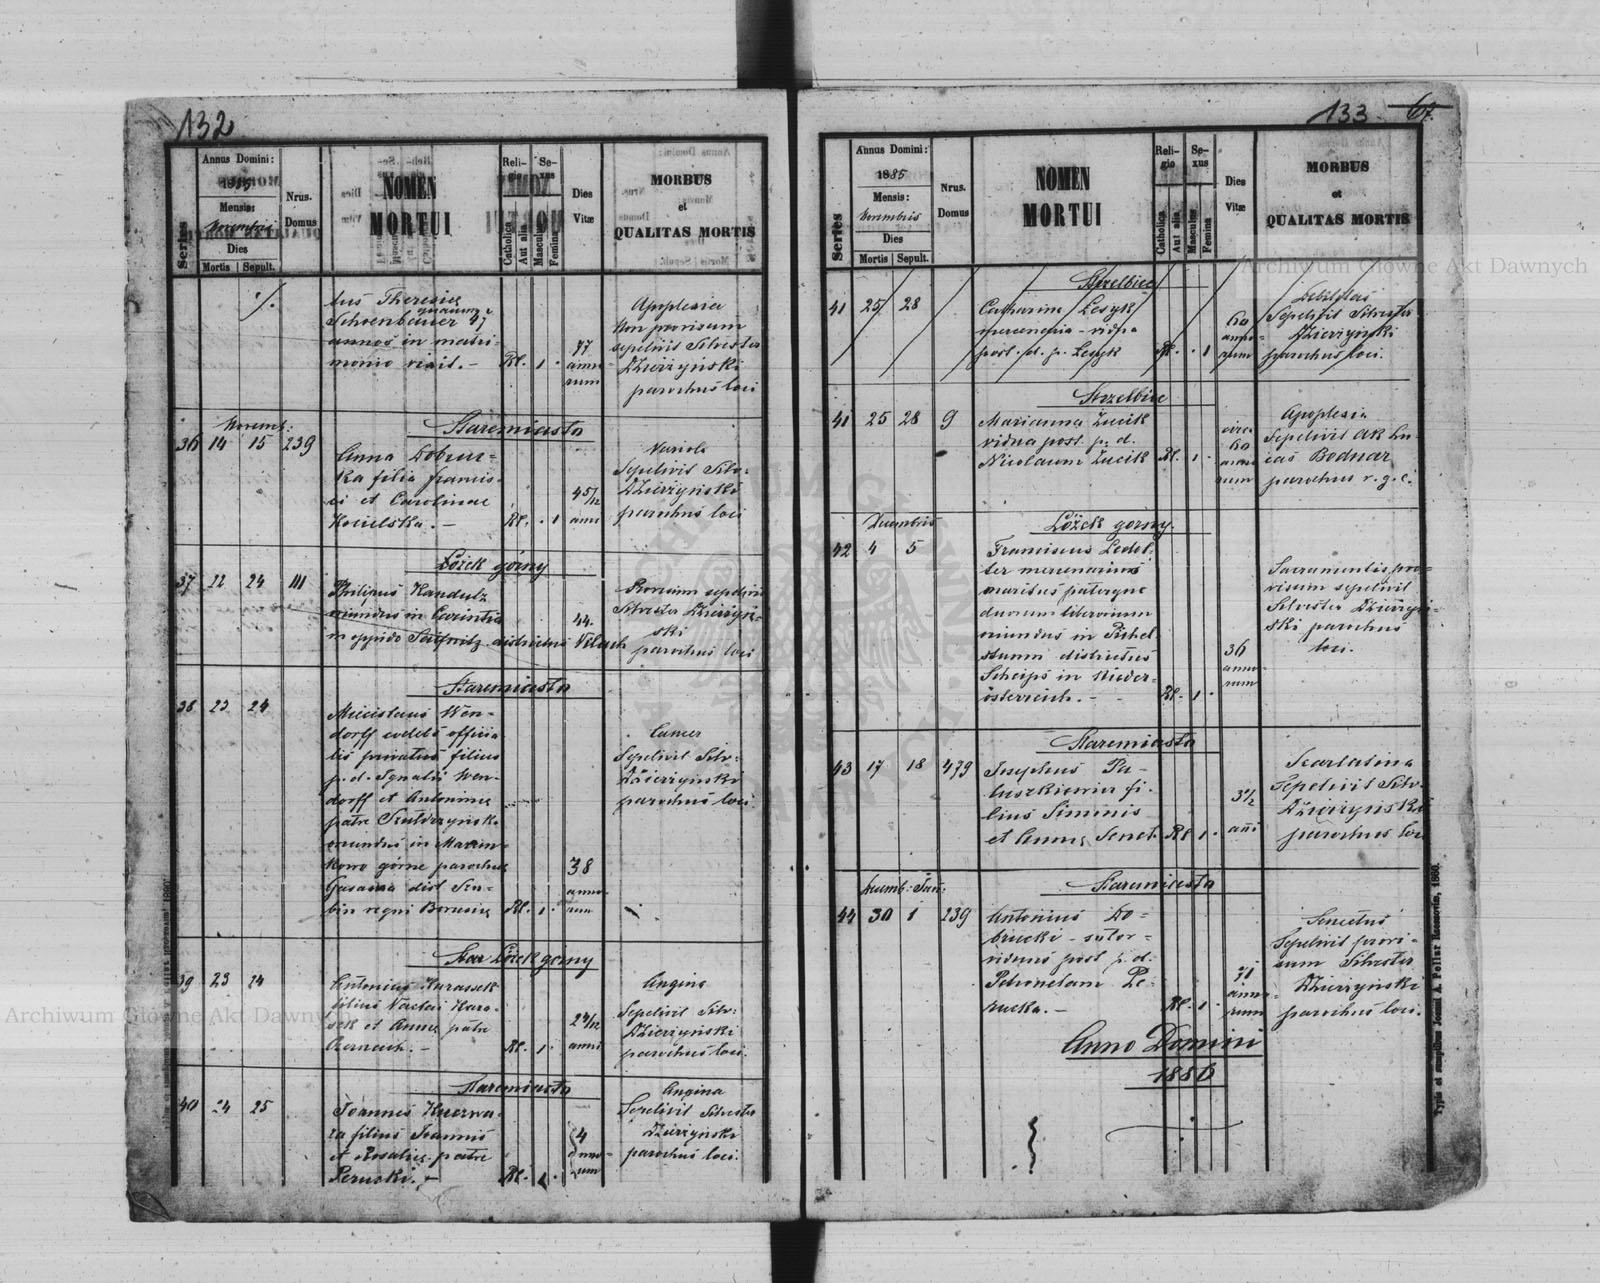 132
Annus Domini:
1885
Mensis:
Novembris
Dies
Mortis | Sepult.
Series
Nrus. Domus
NOMEN
MORTUI
Reli-
gio
Catholica
Aut alia
Se-
xus
Masculus
Femina
Dies
Vitæ
MORBUS
et
QUALITAS MORTIS
tus Theresia
Schoenbauer quacum 47
annos in matri-
monio vixit. — Rl. 1 77 anno rum
Apoplexia
Non provisum
sepelivit Silvester
Dzierzyński
parochus loci
Novemb:
Staremiasto
36 14 15 239
Anna Dobruc=
ka filia francis-
ci et Carolinae
Kocielska. — Rl. 1 4 5/12 anni
Variola
Sepelivit Silv-
Dzierzyński
parochus loci
Łóżek górny
37 22 24 111
Philipus Kandutz
oriundus in Carintia
in oppido Saifnitz districtus Vilach
44.
Provisum sepelivit
Silvester Dzierzyń-
ski
parochus loci
Staremiasto
38 23 24
Miecislaus Wen-
dorff coelebs officia
lis privatus filius
p. d. Ignatii Wen-
dorff et Antonina
patre
oriundus in
kowo górne parochiae
Gąsawa dist. Szu-
bin regni Borussiae Rl. 1. 38 anno rum
Cancer
Sepelivit Silv=
Dzierzyński
parochus loci.
Łóżek górny
39 23 24
Antonius Karassek
filius Vaclai Kara-
sek et Anna patre
Rl. 1. 2 4/12 anni
Angina
Sepelivit Silv:
Dzierzyński
parochus loci.
Staremiasto
40 24 25
Joannes Kucerna-
ra filius Joannis
et Rosalia patre
Peruski. — Rl. 1. 4 anno rum
Angina
Sepelivit Silvester
Dzierzyński
parochus loci.
133 67.
Annus Domini:
1885
Mensis:
Novembris
Dies
Mortis | Sepult.
Series
Nrus.
Domus
NOMEN
MORTUI
Reli-
gio
Catholica
Aut alia
Se-
xus
Masculus
Femina
Dies
Vitæ
MORBUS
et
QUALITAS MORTIS
Strzelbice
41 25 28
Catharina Lesyk
mercenaria - vidua
post. d. p. Lesyk Rl. 1 60 anno- rum
Debilitas
Sepelivit Silvester
Dzierzyński
parochus loci.
Strzelbice
41 25 28 9
Marianna Zucik
vidua post. p. d.
Nicolaum Zucik Rl. 1 circa 60 anno rum
Apoplexia
Sepelivit AR Lu-
cas Bodnar
parochus r. g. c.
Decembris
Łóżek gorny.
42 4 5
Franciscus Ledel-
ter mercenarius
maritus paterque
duorum liberorum
oriundus in Pichel-
districtus
Scheips in Nieder-
österreich. — Rl. 1 36 anno- rum
Sacramentis pro-
visum sepelivit
Silvester Dzierzyń-
ski parochus
loci.
Staremiasto
43 17 18 479
Josephus Pa-
luszkiewicz fi-
lius Simonis
et Anna Senet Rl 1 3 1/2 ani
Scarlatina
Sepelivit Silv-
Dzierzyński
parochus loci
Decemb: Jan:
Staremiasto
44 30 1 239
Antonius Do-
brucki - sutor -
viduus post p. d.
Petronelam Pe-
rucka. — Rl. 1 71 anno- rum
Senectus
Sepelivit provi-
sum Silvester
Dzierzyński
parochus loci.
Anno Domini
1886
Typis et sumptibus Joanni A. Pellar Resoviæ, 1880.
Archiwum Główne Akt Dawnych
Archiwum Główne Akt Dawnych